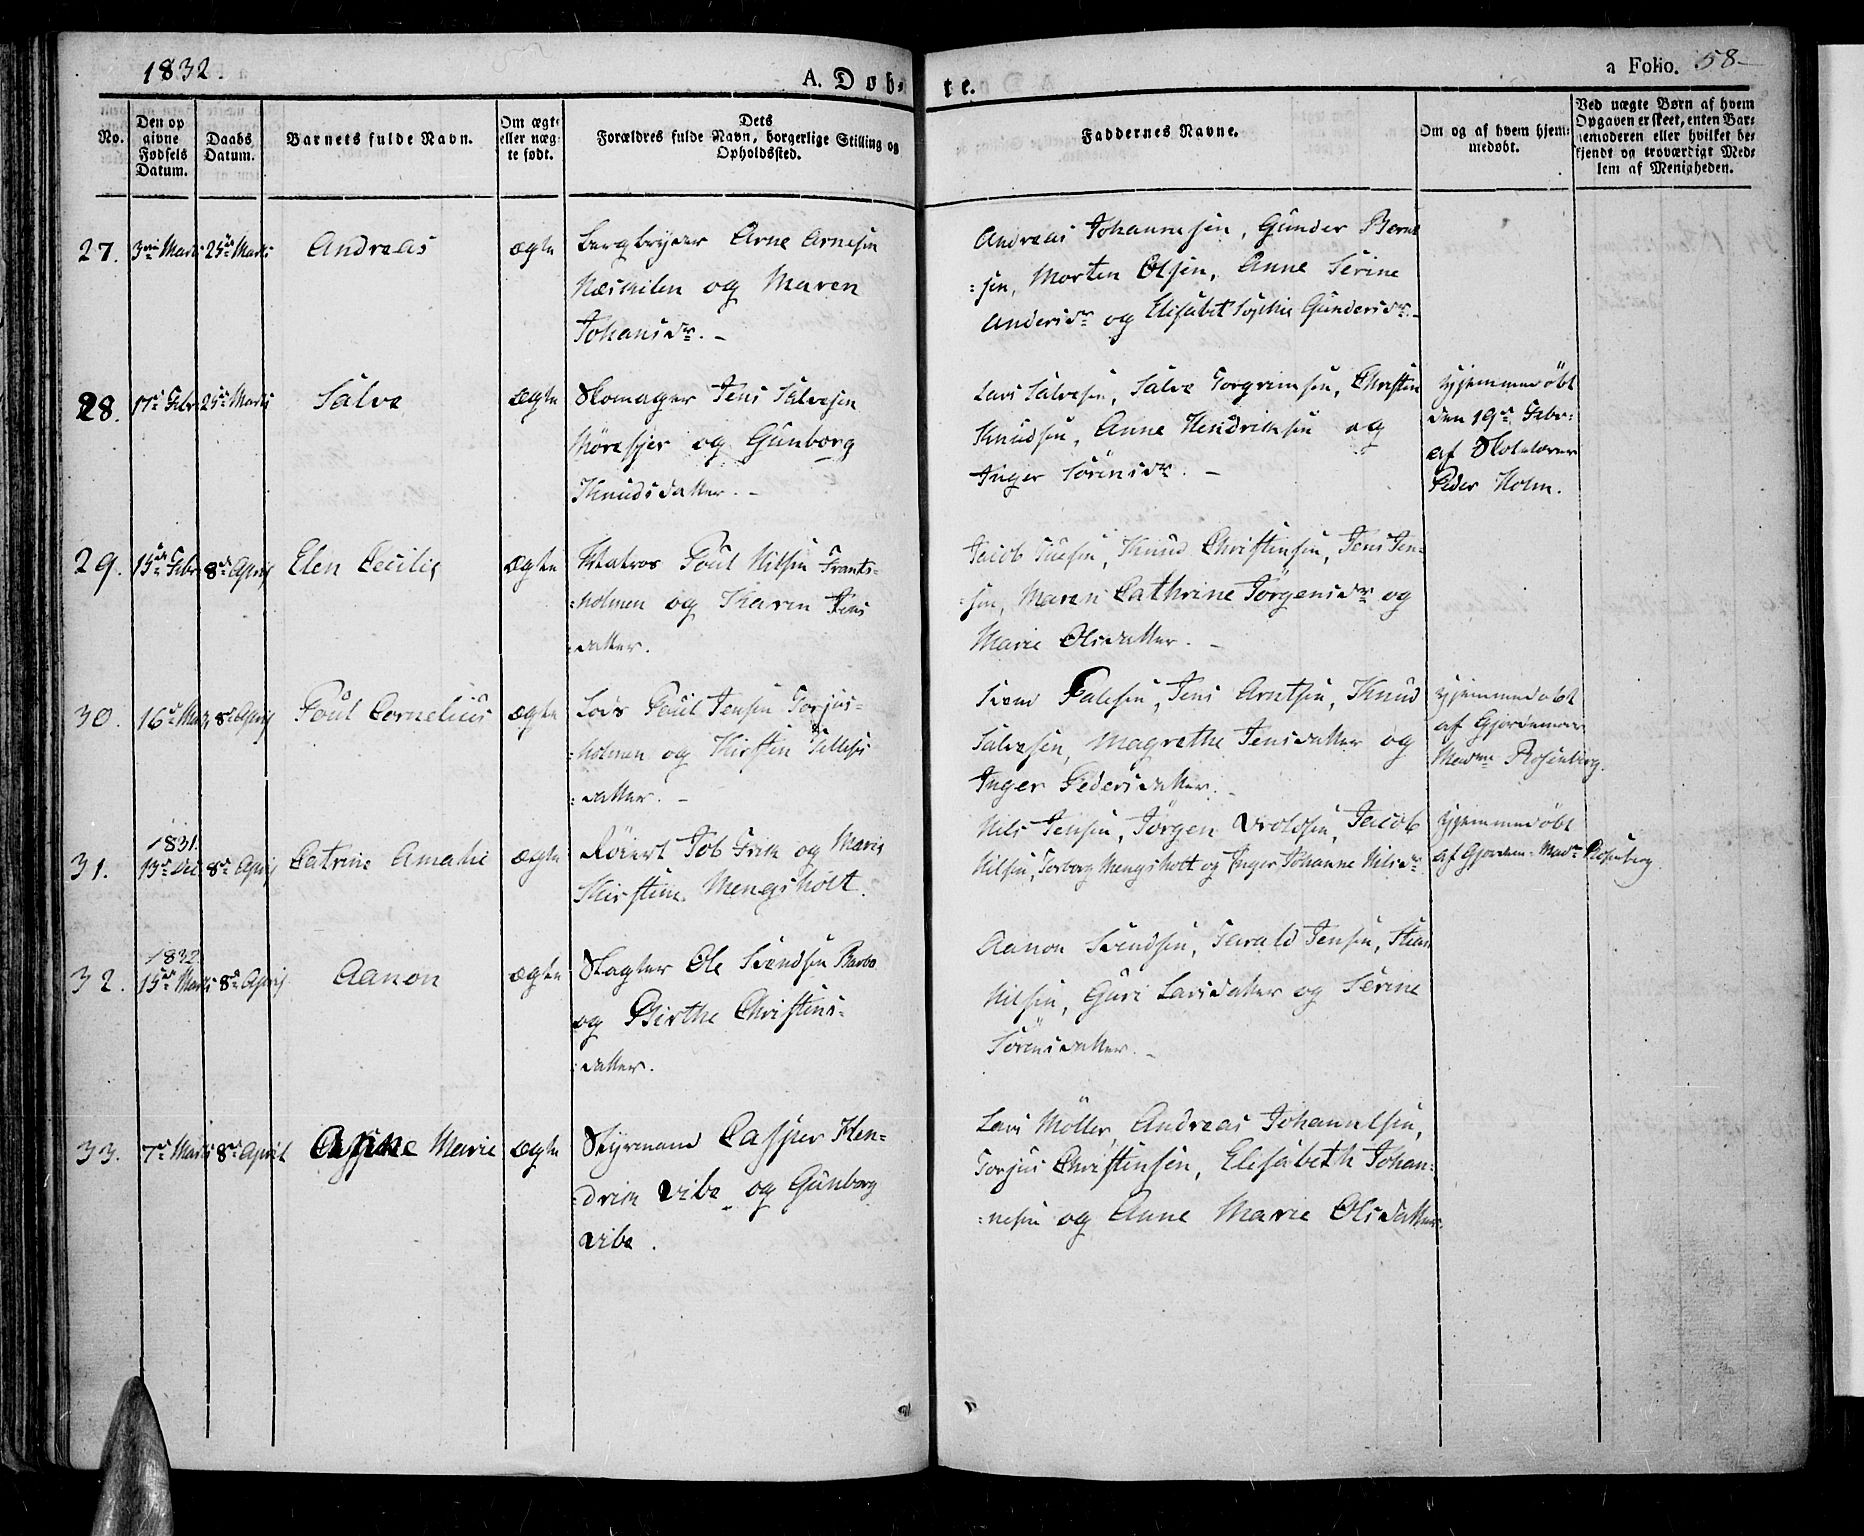 1832.
A. Døb-
te.
a Folio. 58-
No.
Den op
givne
Fødsels
Datum.
Daabs
Datum.
Barnets fulde Navn.
Om ægte
eller uæg-
te født.
Dets
Forældres fulde Navn, borgerlige Stilling og
Opholdssted.
Faddernes Navne.
Om og af hvem hjem-
medøbt.
Ved uægte Børn af hvem
Opgaven er skeet, enten Bar-
nemoderen eller hvilket be-
kjendt og troværdigt Med-
lem af Menigheden.
27. 3die Marts 25de Marts Andreas ægte Bergbryder Arne Arnesen
Næskilen og Maren
Johansdr. -
Andreas Johannesen, Gunder Bernt
=sen, Morten Olsen, Anne Serine
Andersdr og Elisabet Sophie Gundersdr. -
28. 17de Febr. 25de Marts Salve ægte Skomager Jens Salvesen
Mörefjer og Gunborg
Knudsdatter. -
Lars Salvesen, Salve Torgrimsen, Christen
Knudsen, Anne Hendriksen og
Inger Sörensdr. -
Hjemmedöbt
den 19de Febr:
af Skolelærer
Peder Holm.
29. 15de Febr. 8de April Elen Cecilie ægte Matros Poul Nilsen Frants-
=holmen og Karen Jens
=datter.
Jacob Knud Christensen, Jens Jen-
=sen, Maren Cathrine Jörgensdr og
Marie Olsdatter. -
30. 16de Marts 8de April Poul Cornelius ægte Lods Poul Jensen Torjus-
=holmen og Kirsten Tellefs
=datter. -
Svend Palesen, Jens Arntsen, Knud
Salvesen, Magrethe Jensdatter og
Inger Pedersdatter. -
Hjemmedöbt
af Gjordemoer
Madme Rosenberg.
31. 1831.
13de Dec. 8de April Catrine Amalie ægte Röiert Job Frik og Marie
Kirstine Mengsholt.
Nils Jensen, Jörgen Jacob
Nilsen, Torborg Mengsholt og Inger Johanne Nilsdr.
Hjemmedöbt
af Gjordem. Madme Rosenberg.
32. 1832.
15de Marts 8de April Aanon ægte Slagter Ole Svendsen Barbo
og Birthe Christens-
=datter.
Aanon Svendsen, Tarald Jensen,
Nilsen, Guri Larsdatter og Serine
Sörensdatter. -
33. 7de Marts 8de April Anne Marie ægte Styrmand Casper Hen-
=drik Vibe og Gunborg
Vibe.
Lars Möller, Andreas Johannesen,
Torjus Christensen, Elisabeth Johan-
=nesen og Anne Marie Olsdatter.